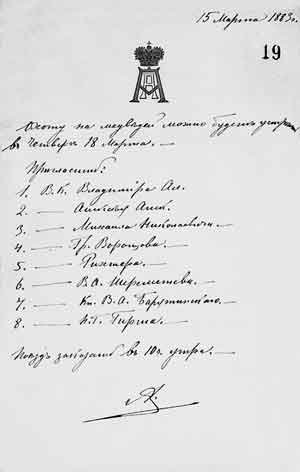 15 Марта 1883 г.
19
Охоту на медведей можно будетъ устроить
въ Четвергъ 18 Марта. —
Пригласить:
1. В.К. Владиміра Ал.
2. — Алексѣя Алек.
3. — Михаила Николаевича. —
4. — Гр. Воронцова. —
5. — Рихтера. —
6. — В.А. Шереметева. —
7. — Кн. В.А. Барятинскаго. —
8. — Н.Г. Гирса. —
Поѣздъ заказать въ 10 ч. утра. —
А.